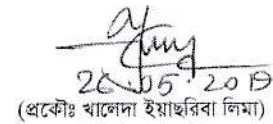 26.05.2019
(প্রকৌঃ খালেদা ইয়াছরিবা লিমা)